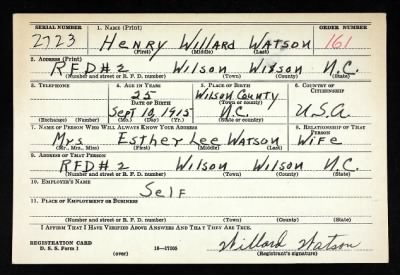 SERIAL NUMBER 1. NAME (Print) ORDER NUMBER
2723 HENRY WILLARD WATSON 161
(First) (Middle) (Last)
2. ADDRESS (Print)
RFD#2 WILSON WILSON N.C.
(Number and street or R. F. D. number) (Town) (County) (State)
3. TELEPHONE 4. AGE IN YEARS 5. PLACE OF BIRTH 6. COUNTRY OF CITIZENSHIP
25 WILSON COUNTY
DATE OF BIRTH (Town or county)
Sept 10, 1915 N.C. U.S.A.
(Exchange) (Number) (Mo.) (Day) (Yr.) (State or country)
7. NAME OF PERSON WHO WILL ALWAYS KNOW YOUR ADDRESS 8. RELATIONSHIP OF THAT PERSON
MRS ESTHER LEE WATSON WIFE
(Mr., Mrs., Miss) (First) (Middle) (Last)
9. ADDRESS OF THAT PERSON
RFD#2 WILSON WILSON N.C.
(Number and street or R. F. D. number) (Town) (County) (State)
10. EMPLOYER'S NAME
SELF
11. PLACE OF EMPLOYMENT OR BUSINESS
(Number and street or R. F. D. number) (Town) (County) (State)
I AFFIRM THAT I HAVE VERIFIED ABOVE ANSWERS AND THAT THEY ARE TRUE.
REGISTRATION CARD
D. S. S. Form 1 16—17105 Willard Watson
(over) (Registrant's signature)